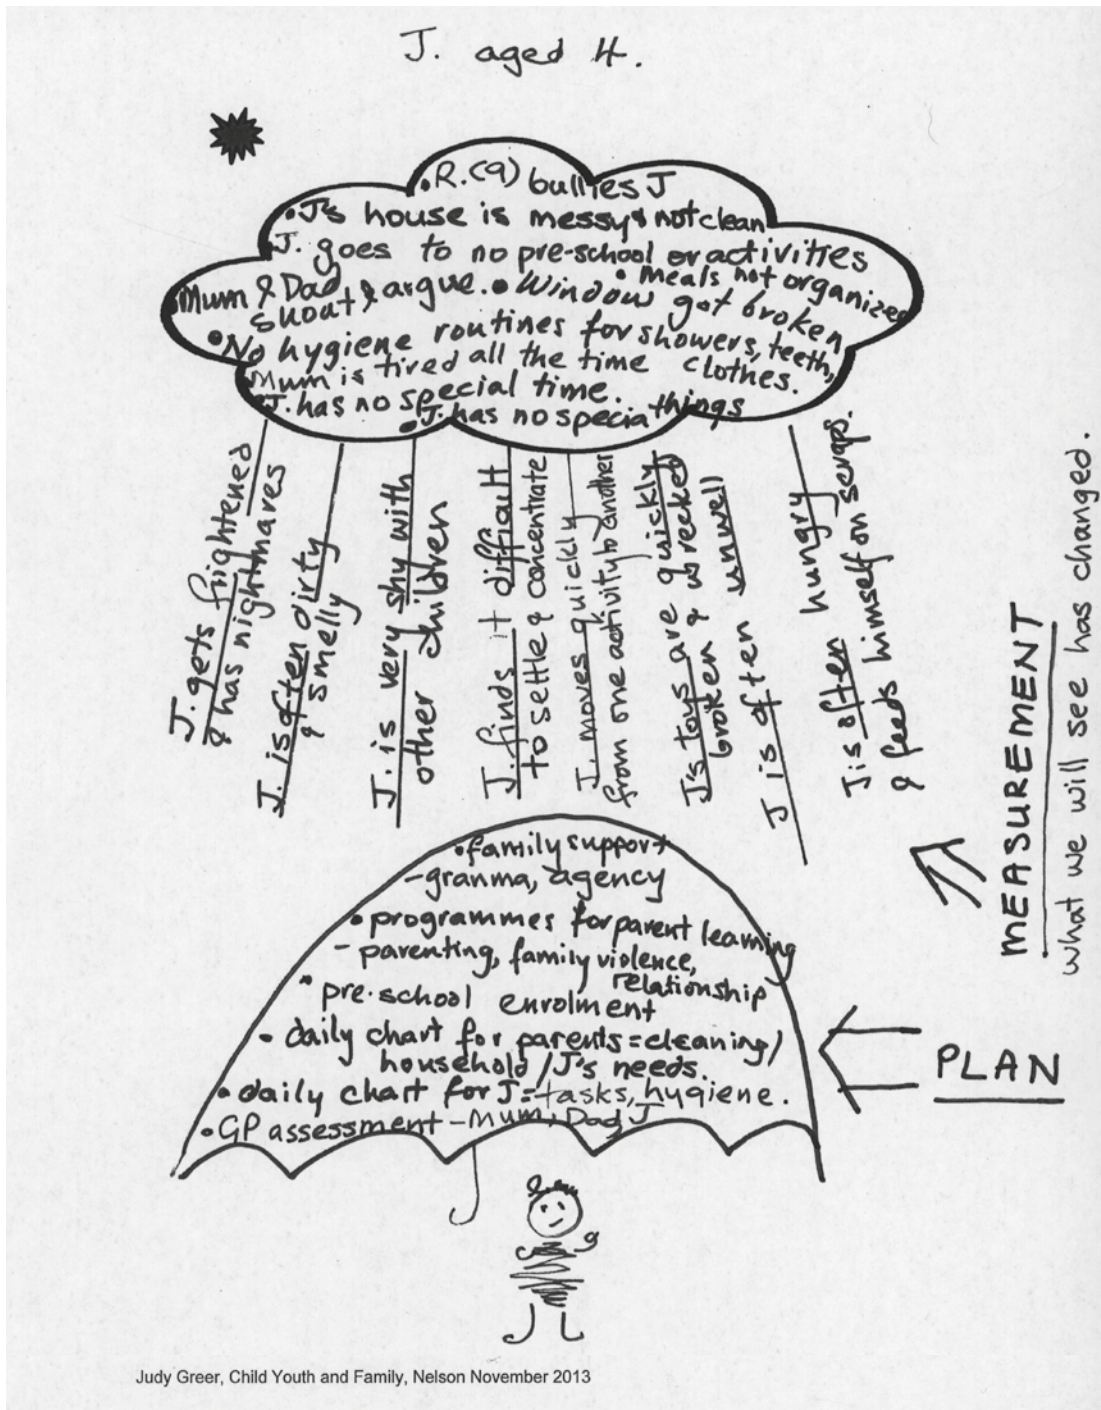 J. aged 4.
• R. (9) bullies J
• J's house is messy & not clean
• J. goes to no pre-school or activities
• meals not organized
• Mum & Dad shout & argue.
• Window got broken
• No hygiene routines for showers, teeth, clothes.
Mum is tired all the time
• J. has no special time.
• J. has no specia things
J. gets frightened
& has nightmares
J. is often dirty
& smelly
J. is very shy with
other children
J. finds it difficult
to settle & concentrate
J. moves quickly
from one activity to another
J's toys are quickly
broken & wrecked
J is often unwell
J is often hungry
& feeds himself on scraps.
MEASUREMENT
what we will see has changed.
• family support
- granma, agency
• programmes for parent learning
- parenting, family violence,
relationship
• pre-school enrolment
• daily chart for parents = cleaning/
household/J's needs.
• daily chart for J = tasks, hygiene.
• GP assessment - Mum, Dad, J
PLAN
Judy Greer, Child Youth and Family, Nelson November 2013